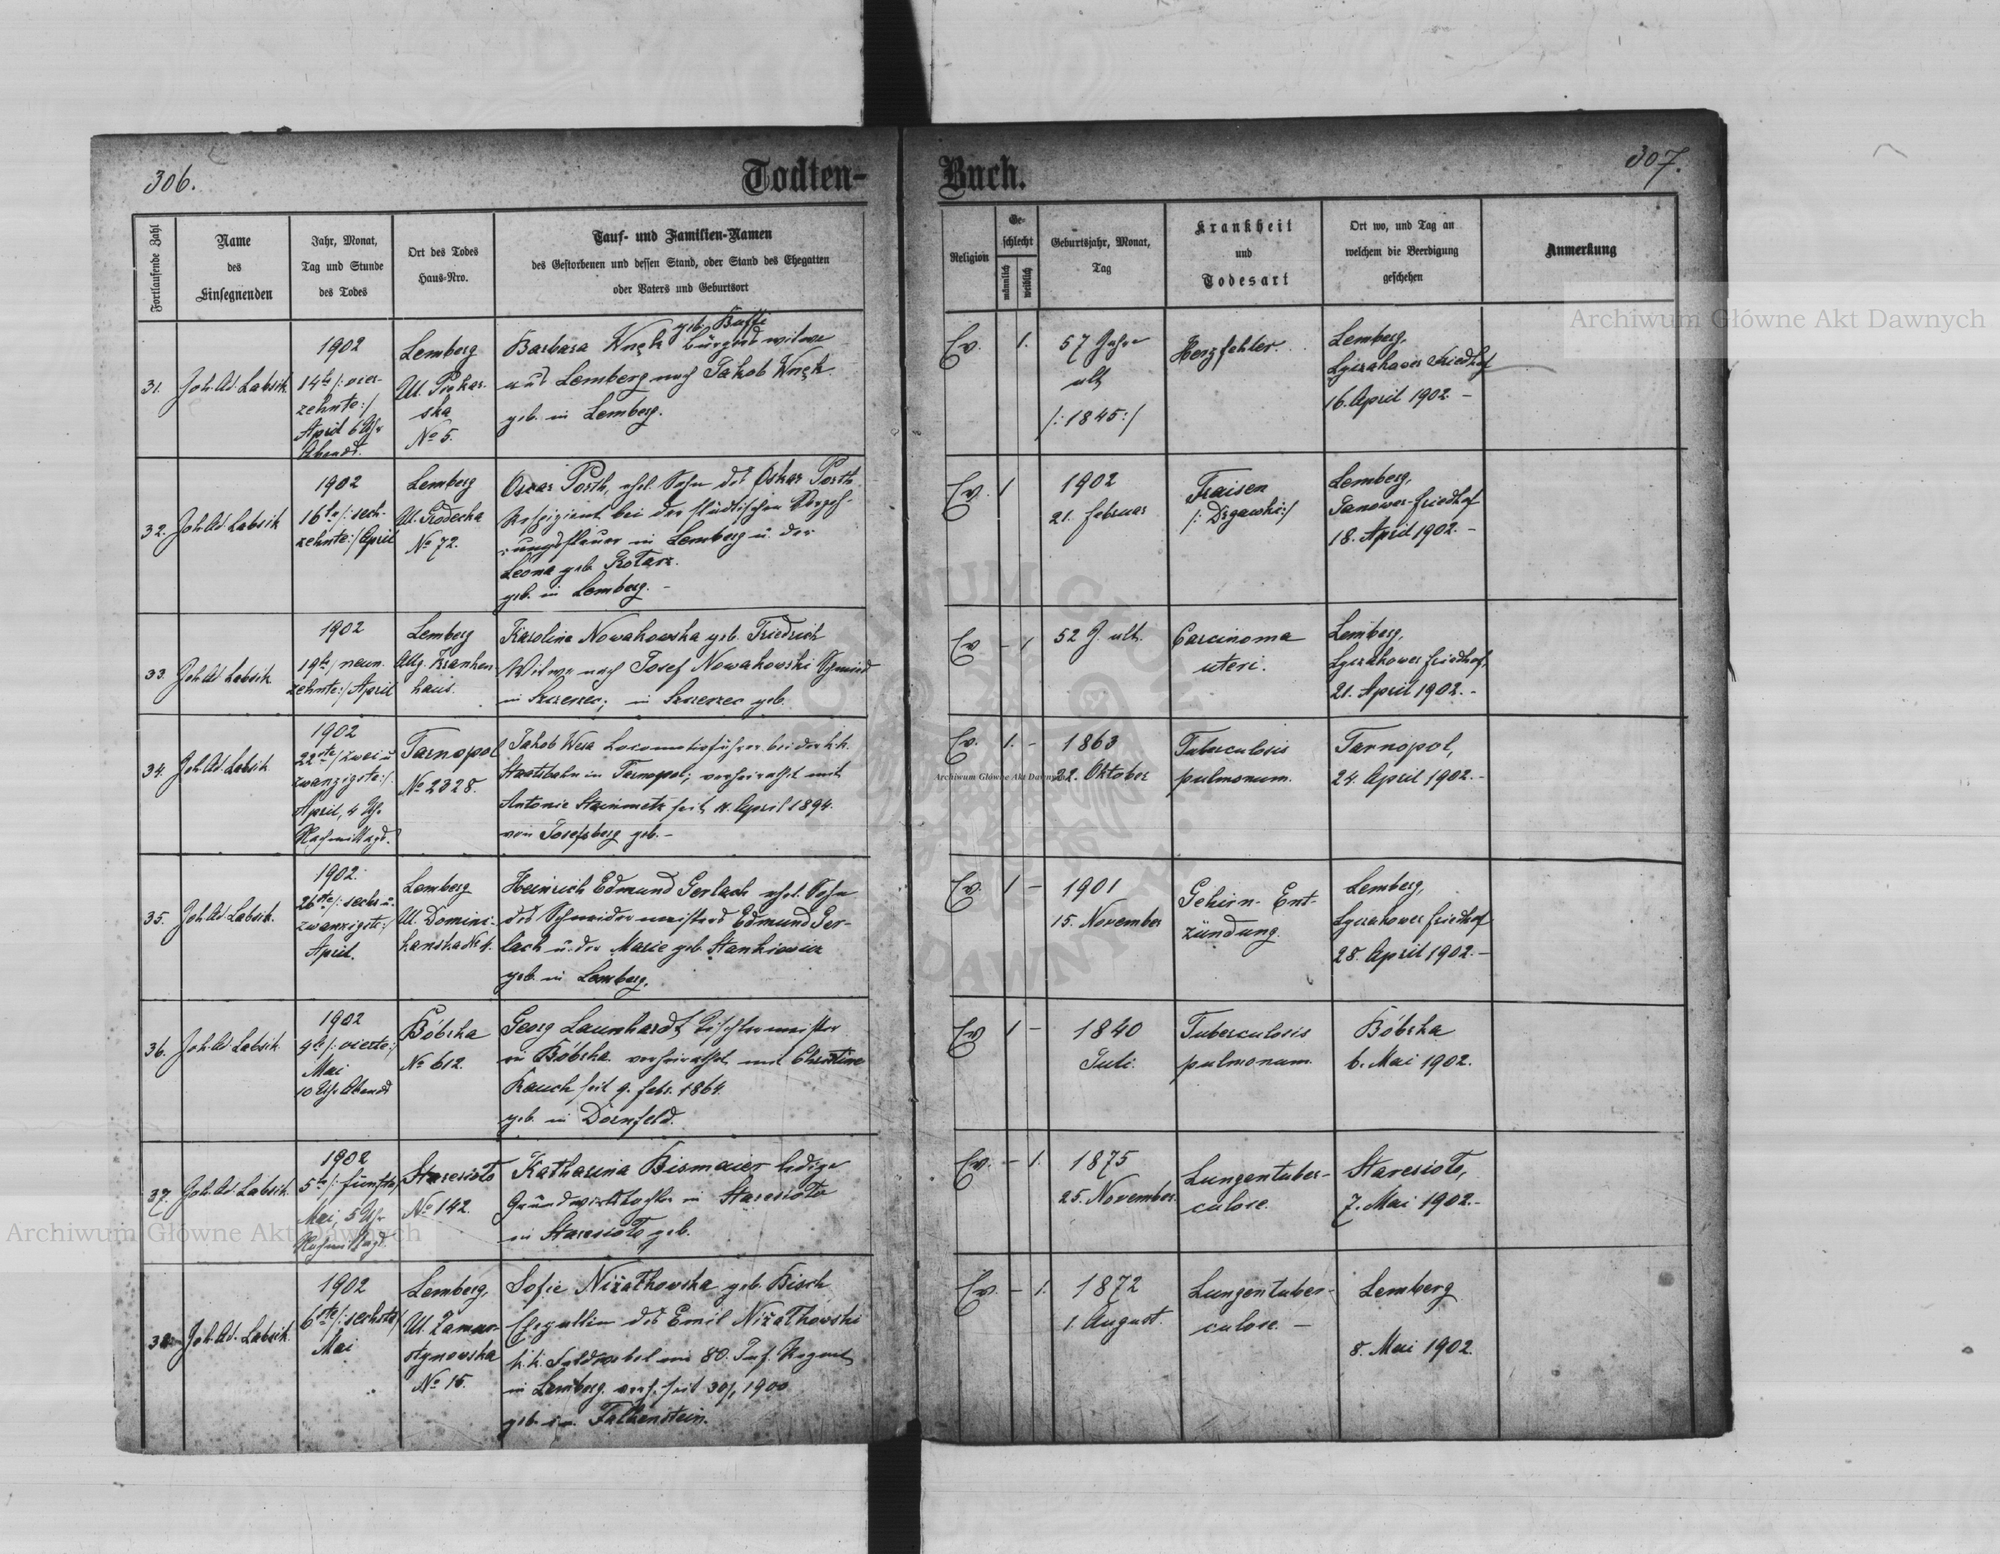 306.
Todten-
Buch.
307.
Fortlaufende Zahl
Name
des
Einsegnenden
Jahr, Monat,
Tag und Stunde
des Todes
Ort des Todes
Haus-Nro.
Tauf- und Familien-Namen
des Gestorbenen und dessen Stand, oder Stand des Ehegatten
oder Vaters und Geburtsort
Religion
Ge-
schlecht
männlich
weiblich
Geburtsjahr, Monat,
Tag
Krankheit
und
Todesart
Ort wo, und Tag an
welchem die Beerdigung
geschehen
Anmerkung
31.
Joh. Ad. Labsik
1902
14te /: vier-
zehnte :/
April 6 Uhr
Abends.
Lemberg
Ul. Pekar-
ska
No 5.
geb.
Barbara Wnęk Bürgerswitwe
aus Lemberg nach Jakob Wnęk
geb. in Lemberg.
Ev.
1.
57 Jahre
alt
/: 1845 :/
Herzfehler.
Lemberg,
Lyczakower Friedhof
16. April 1902. -
32.
Joh. Ad. Labsik
1902
16te /: sech-
zehnte :/ April
Lemberg
Ul. Grodecka
No 72.
Oscar Porth, ehel. Sohn des Oskar Porth
Respizient bei der städtischen Verzeh-
rungssteuer in Lemberg u. der
Leona geb. Kotarz.
geb. in Lemberg. -
Ev.
1
1902
21. Februar
Fraisen
/: Drgawki :/
Lemberg,
Janower-Friedhof
18. April 1902. -
33.
Joh. Ad. Labsik
1902
19te /: neun-
zehnte :/ April
Lemberg
Allg. Kranken
haus.
Karolina Nowakowska geb. Friedrich
Witwe nach Josef Nowakowski Schmied
in Szczerzec; in Szczerzec geb.
Ev.
- 1
52 J. alt.
Carcinoma
uteri.
Lemberg,
Lyczakower Friedhof,
21. April 1902. -
34.
Joh. Ad. Labsik
1902
22ste /: zwei u
zwanzigste :/
April, 4 Uhr
Nachmittags.
Tarnopol
No 2328.
Jakob Wesa Locomotivführer bei der k.k.
Staatsbahn in Tarnopol; verheirathet mit
Antonie Steinmetz seit 11. April 1894.
von Josefsberg geb. -
Ev.
1. -
1863
22. Oktober
Tuberculosis
pulmonum.
Tarnopol,
24. April 1902. -
35.
Joh. Ad. Labsik.
1902.
26ste /: sechs u.
zwanzigste :/
April.
Lemberg
Ul. Domini-
kanska No 4.
Heinrich Edmund Gerlach ehel. Sohn
des Schneidermeisters Edmund Ger-
lach u. der Marie geb. Stankiewicz
geb. in Lemberg.
Ev.
1 -
1901
15. November
Gehirn- Ent-
zündung.
Lemberg,
Lyczakower Friedhof
28. April 1902. -
36.
Joh. Ad. Labsik
1902
4te /: vierte :/
Mai
10 Uhr Abends
Bóbrka
No 612.
Georg Launhardt, Tischlermeister
in Bóbrka verheirathet mit Christine
Rauch seit 9. Febr. 1864.
geb. in Dornfeld.
Ev
1 -
1840
Juli.
Tuberculosis
pulmonum.
Bóbrka
6. Mai 1902.
37.
Joh. Ad. Labsik.
1902
5te /: fünfte :/
Mai, 5 Uhr
Nachmittags.
Staresioło
No 142.
Katharina Bismaier ledige
Grundwirthstochter in Staresioło
in Staresioło geb.
Ev.
- 1.
1875
25. November.
Lungentuber-
culose.
Staresioło,
7. Mai 1902. -
38.
Joh. Ad. Labsik.
1902
6ste /: sechste :/
Mai
Lemberg,
Ul. Zamar-
stynowska
No 15.
Sofie Nizałkowska geb. Bisch
Ehegattin des Emil Nizałkowski
k.k. Feldwebel im 80. Inf. Regmt.
in Lemberg verh. seit 1900
geb. in Falkenstein.
Ev.
- 1.
1872
1. August.
Lungentuber-
culose. -
Lemberg
8. Mai 1902.
Archiwum Główne Akt Dawnych
Archiwum Główne Akt Dawnych
Archiwum Główne Akt Dawnych